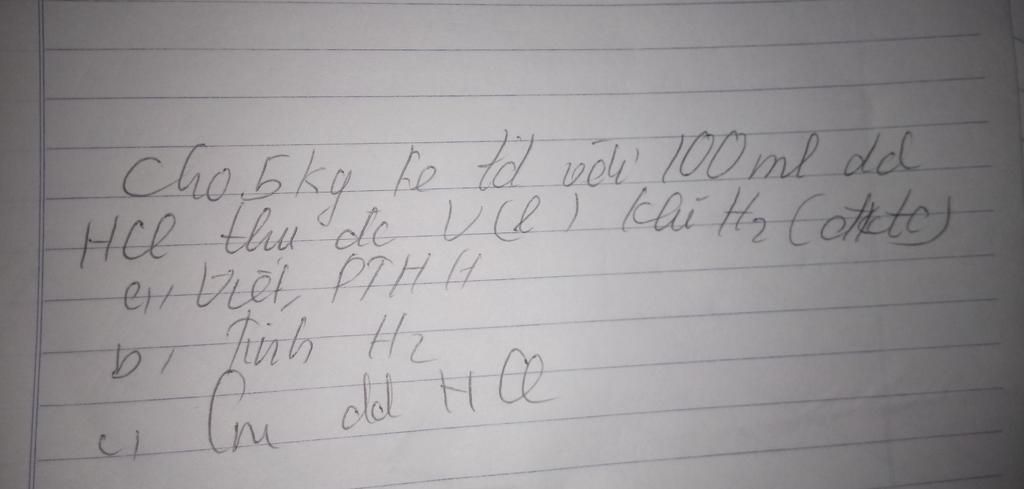 Cho 5kg Fe td với 100ml dd
HCl thu dc V(l) khí H2 (đktc)
a, Viết PTHH
b, Tính H2
c, Cm dd HCl